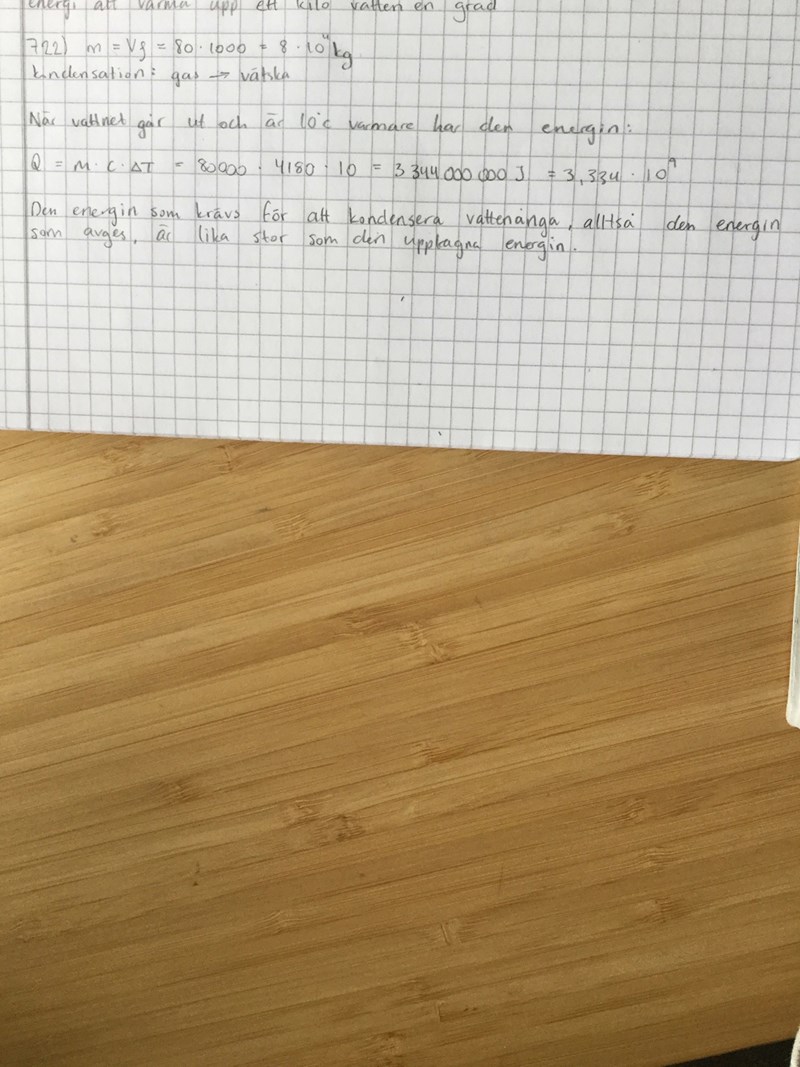 energi att värma upp ett kilo vatten en grad
722) m = Vρ = 80 · 1000 = 8 · 10⁴ kg
kndensation: gas → vätska
När vattnet går ut och är 10°c varmare har den energin:
Q = m · c · ΔT = 80000 · 4180 · 10 = 3 344 000 000 J = 3,334 · 10⁹
Den energin som krävs för att kondensera vattenånga, alltså den energin
som avges, är lika stor som den upptagna energin.